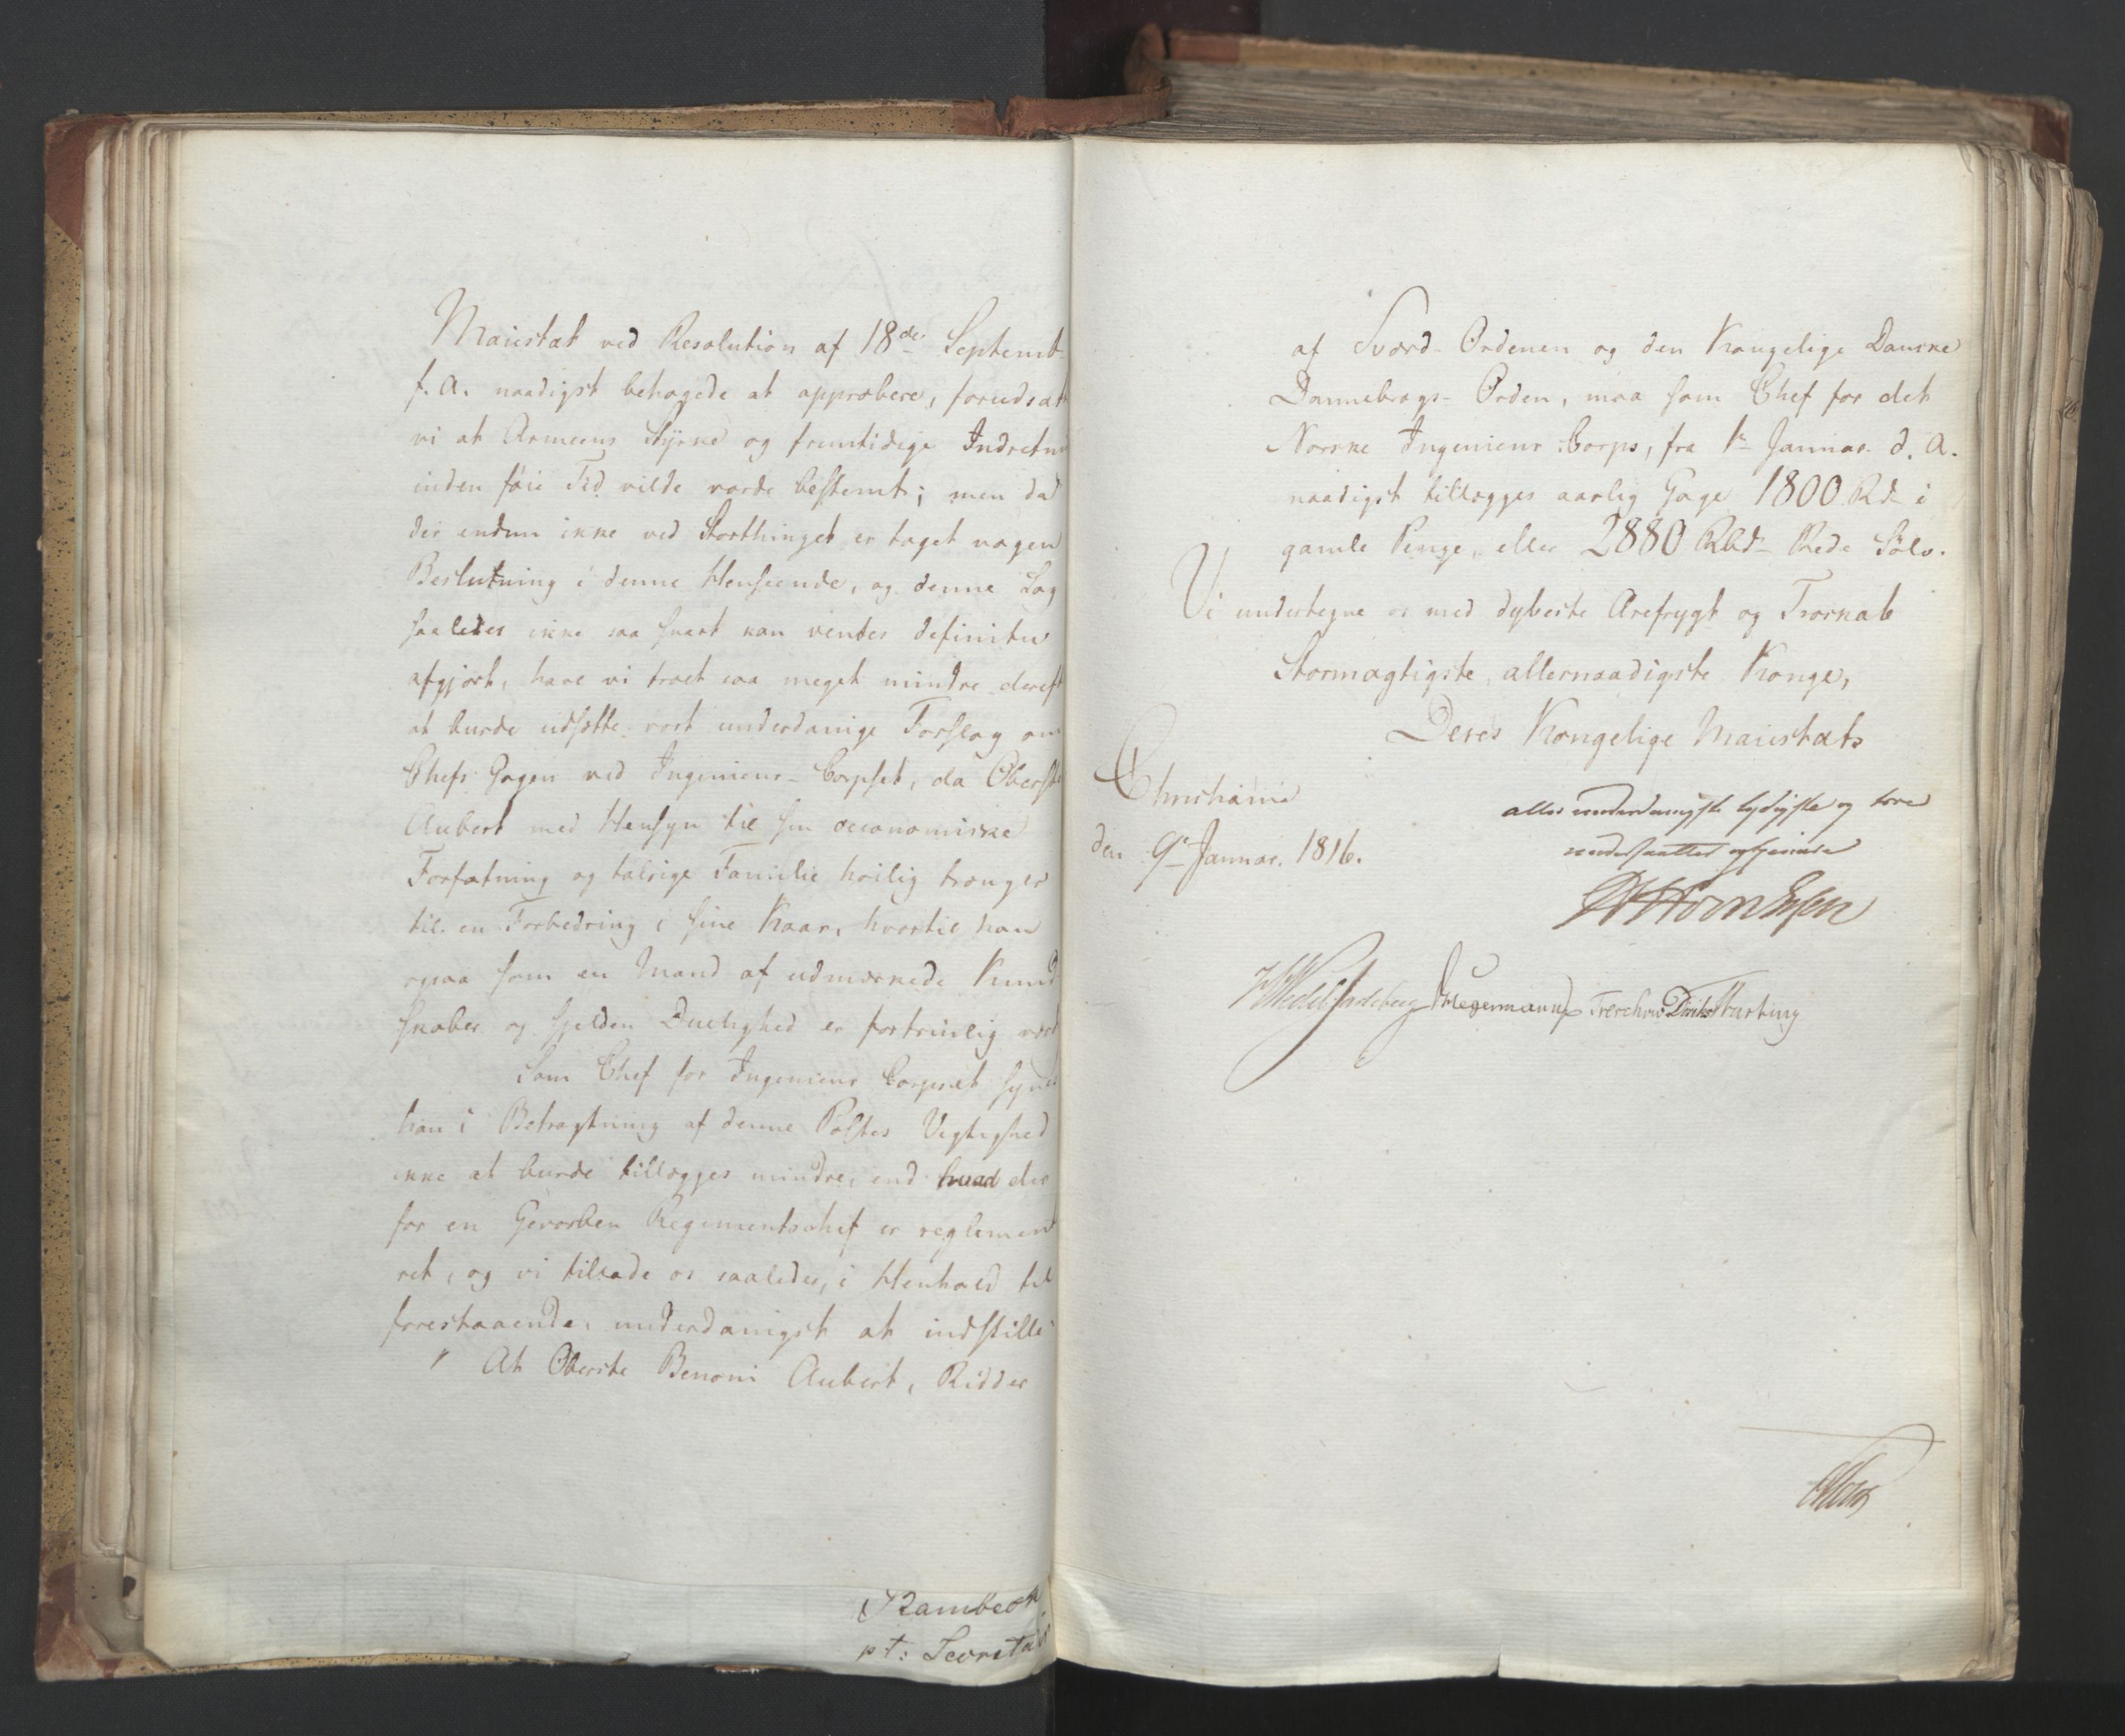 Maiestæt ved Resolution af 18de Septemb
f. A. naadigst behagede at approbere, forudsatt
vi at Armeens Styrke og fremtidige Indretn
inden føie Tid vilde vorde bestemt; men da
der endnu ikke ved Storthinget er taget nogen
Beslutning i denne Henseende, og denne Sag
saaledes ikke saa snart kan ventes definitiv
afgjort, have vi troet saa meget mindre dereft
at burde udsætte vort underdanige Forslag om
Chefs Gagen ved Ingenieur-Corpset, da Oberste
Aubert med Hensyn til sin oeconomiske
Forfatning og talrige Familie høilig trænger
til en Forbedring i sine Kaar, hvortil han
ogsaa som en Mand af udmærkede Kund
skaber og sjelden Duelighed er fortrinlig værd
Som Chef for Ingenieur Corpset synes
han i Betragtning af denne Postes Vigtighed
ikke at burde tillægges mindre, end hvad der
for en Gevorben Regimentschef er reglement
ret, og vi tillade os saaledes, i Henhold til
forestaaende, underdanigst at indstille
" At Oberste Benoni Aubert, Ridder
Rambech
pt: Secretair
af Sværd-Ordenen og den Kongelige Danske
Dannebrogs-Orden, maa som Chef for det
Norske Ingenieur Corps, fra 1te Januar d. A.
naadigst tillægges aarlig Gage 1800 Rd. i
gamle Penge, eller 2880 Rbd. Rede Sølv.
Vi undertegne os med dybeste Ærefrygt og Troskab
Stormægtigste, allernaadigste Konge,
Deres Kongelige Maiestæts
Christiania
den 9de Januar. 1816.
allerunderdanigste lydigste og troe
undersaatter og tjenere
von Essen
Wedel Jarlsberg Hegermann Treschow Diriks Motzfeldt